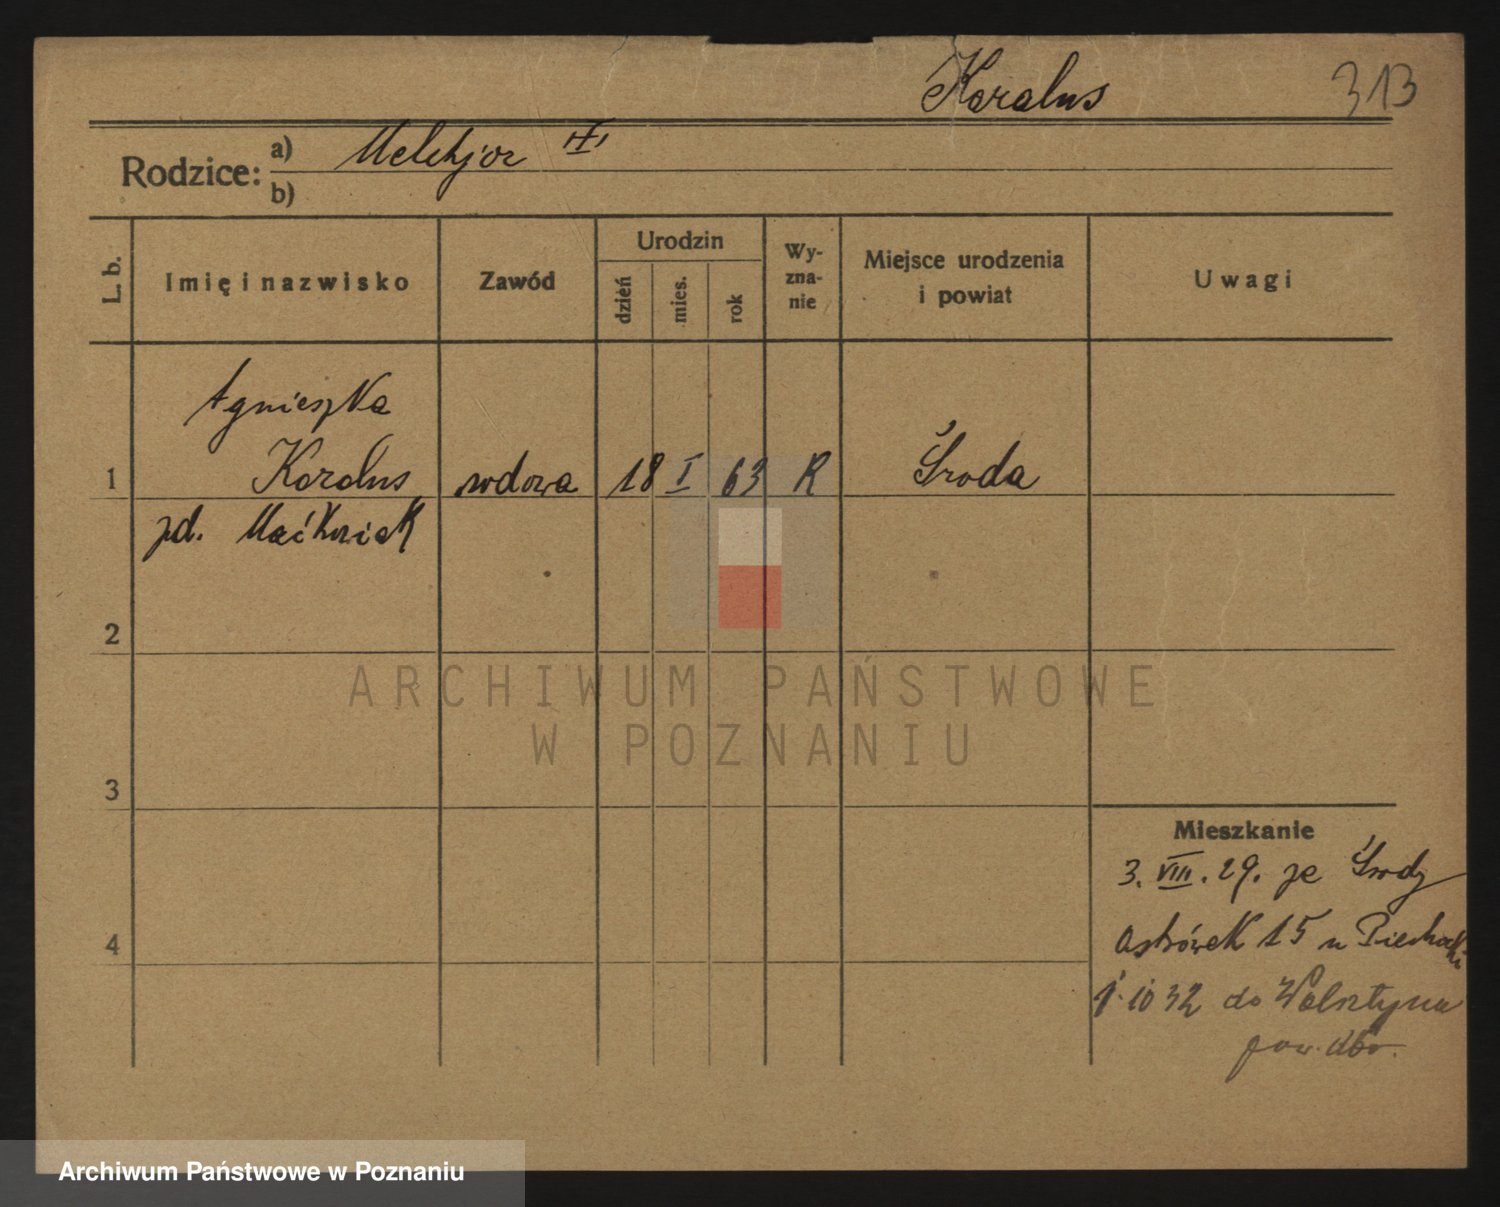 Koralus 313
Rodzice: a) Melchjor
b)
L. b. Imię i nazwisko Zawód Urodzin dzień mies. rok Wy-zna-nie Miejsce urodzenia i powiat Uwagi
Agnieszka
1 Koralus wdowa 18 I 63 R Środa
zd. Maćkowiak
2
ARCHIWUM PAŃSTWOWE
W POZNANIU
3
Mieszkanie
3. VIII. 29. ze Środy
4 Ostrówek 15 u
1. 10 32 do Wolsztyna
pow.
Archiwum Państwowe w Poznaniu